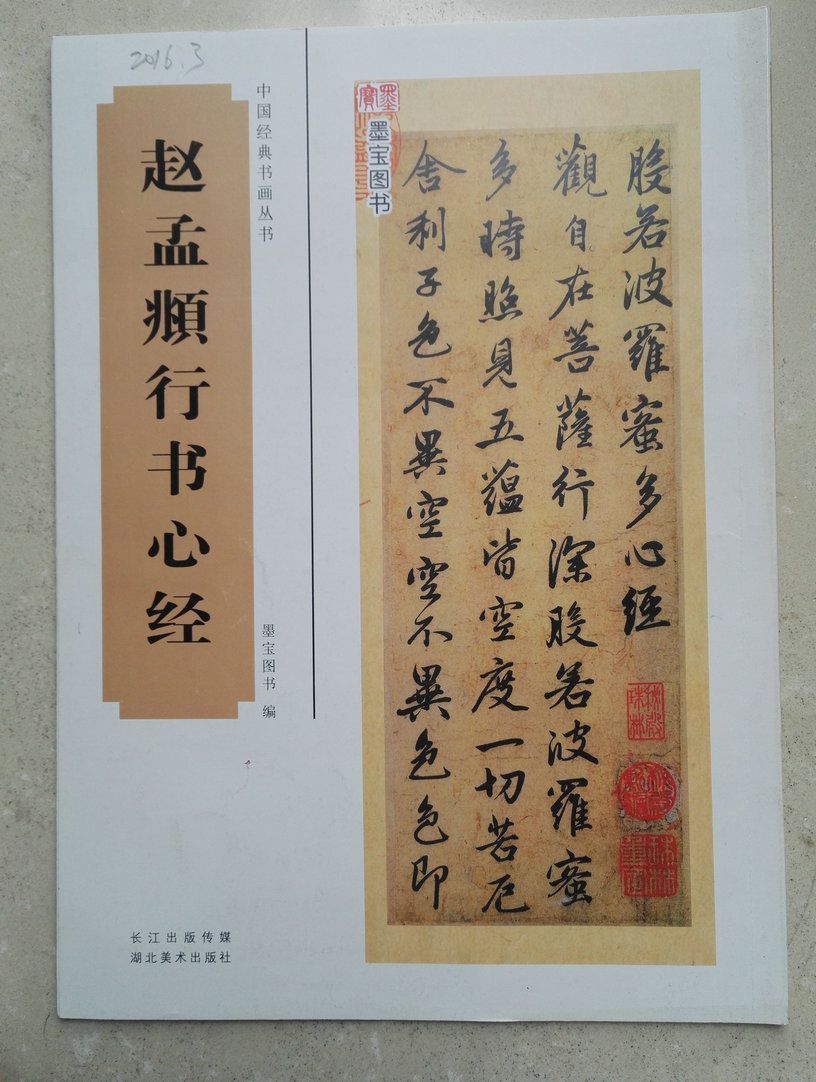 2016.3
中国经典书画丛书
赵孟頫行书心经
墨宝图书 编
长江出版传媒
湖北美术出版社
墨寶
墨宝图书
般若波羅蜜多心經
觀自在菩薩行深般若波羅蜜
多時照見五蘊皆空度一切苦厄
舍利子色不異空空不異色色即
秘殿珠林